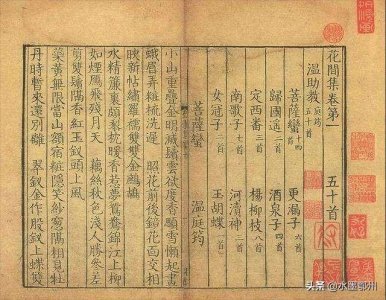 花間集卷第一 五十首
溫助教庭筠
菩薩蠻 更漏子
歸國遙 酒泉子四首
定西番三首 楊柳枝八首
南歌子 首 河瀆神 首
女冠子 首 玉胡蝶一首
菩薩蠻 溫庭筠
小山重疊金明滅鬢雲欲度香顋雪懶起畫
蛾眉弄粧梳洗遲 照花前後鏡花面交相
映新帖繡羅襦雙雙金鷓鴣
水精簾裏頗黎枕暖香惹夢鴛鴦錦江上柳
如煙鴈飛殘月天 藕絲秋色淺人勝參差
剪雙鬢隔香紅玉釵頭上風
蘂黃無限當山額宿粧隱笑紗窓隔相見牡
丹時暫來還別離 翠釵金作股釵上蝶雙
头条 @水墨郓州